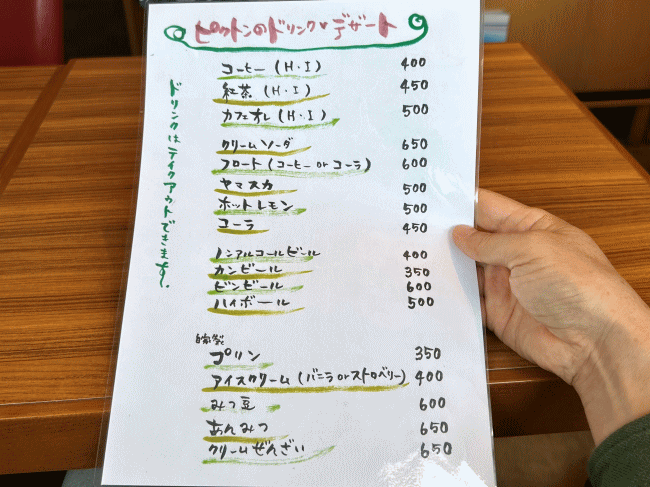 ピットンのドリンク♥デザート
コーヒー (H・I) 400
紅茶 (H・I) 450
カフェオレ (H・I) 500
クリームソーダ 650
フロート (コーヒー or コーラ) 600
ヤマスカ 500
ホットレモン 500
コーラ 450
ノンアルコールビール 400
カンビール 350
ビンビール 600
ハイボール 500
自家製
プリン 350
アイスクリーム (バニラ or ストロベリー) 400
みつ豆 600
あんみつ 650
クリームぜんざい 650
ドリンクはテイクアウトできます〜